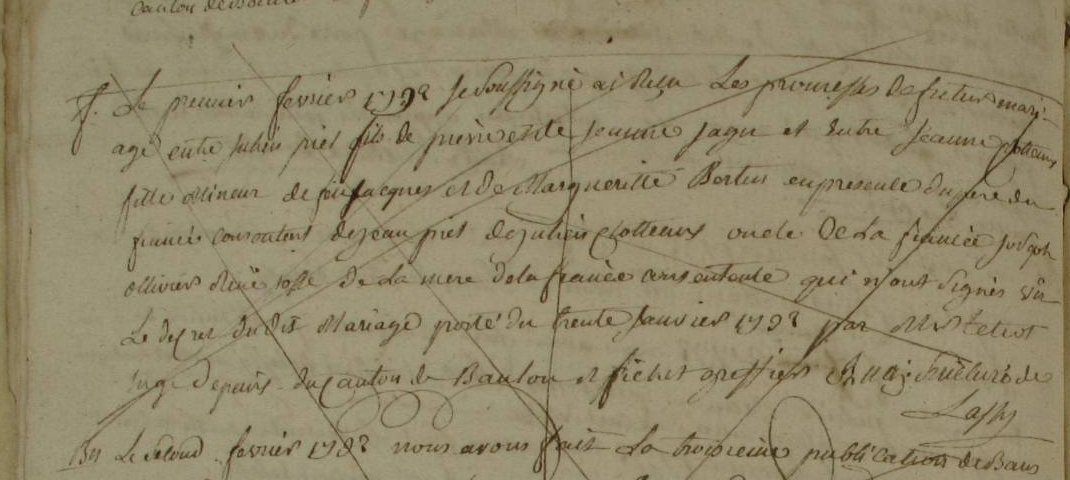 canton de
f. Le premier fevrier 1792 je soussigné ai Reçu Les promesses de futur mari-
age entre julien piel fils de pierre et de jeanne jagu et entre jeanne clotteaux
fille Mineur de feu jacques et de Margueritte Bertin en presence du pere du
fiancé consentent de jean piel de julien clotteaux oncle de La fiancée joseph
ollivier René de La mere de la fiancée consentente qui n'ont signés vû
Le decret du dit Mariage porté du trente janvier 1792 par Mr
juge de paix du Canton de Baulon et fichet greffier de
Lassy
Bn Le second fevrier 1792 nous avons fait La troisieme publication de Bans